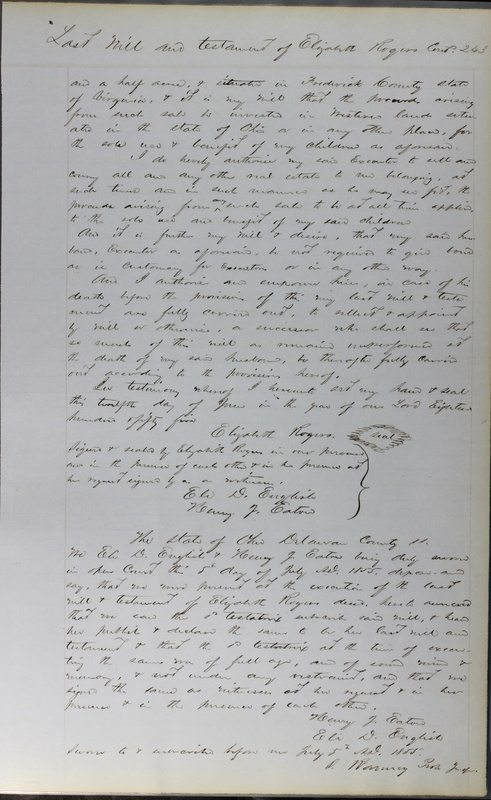 Last Will and testament of Elizabeth Rogers Cont. 243
and a half acres, & situated in Frederick County State
of Virginia, & it is my will that the proceeds arising
from such sale be invested in Western lands situ
ated in the state of Ohio or in any other place, for
the sole use & benefit of my children as aforesaid.
I do hereby authorize my said Executor to sell and
convey all and any other real estate to me belonging, at
such time and in such manner as he may see fit, the
proceeds arising from any such sale to be at all times applied
to the sole use and benefit of my said children
And it is further my will & desire, that my said hus
band, Executor as aforesaid, be not required to give bond
as is customary for Executors or in any other way.
And I authorize and empower him, in case of his
death before the provisions of this my last will & testa
ment are fully carried out, to select & appoint
by will or otherwise, a successor who shall see that
so much of this will as remains unperformed at
the death of my said husband, be thereafter fully carried
out according to the provisions hereof.
In testimony whereof I hereunto set my hand & seal
this twelfth day of June in the year of our Lord Eighteen
hundred & fifty five
Elizabeth Rogers. Seal
Signed & sealed by Elizabeth Rogers in our presence
and in the presence of each other & in her presence at
her request signed by us as witnesses.
Eli D. English
Henry J. Eaton
The State of Ohio Delaware County ss.
We Eli D. English & Henry J. Eaton being duly sworn
in open Court this 5th day of July AD. 1855. depose and
say, that we were present at the execution of the last
will & testament of Elizabeth Rogers decd. hereto annexed
that we saw the sd testatrix subscribe said will, & heard
her publish & declare the same to be her last will and
testament & that the sd testatrix at the time of execu-
ting the same was of full age, and of sound mind &
memory, & not under any restraint, and that we
signed the same as witnesses at her request & in her
presence & in the presence of each other.
Henry J. Eaton
Eli D. English
Sworn to & subscribed before me July 5th AD. 1855
Prob Judge